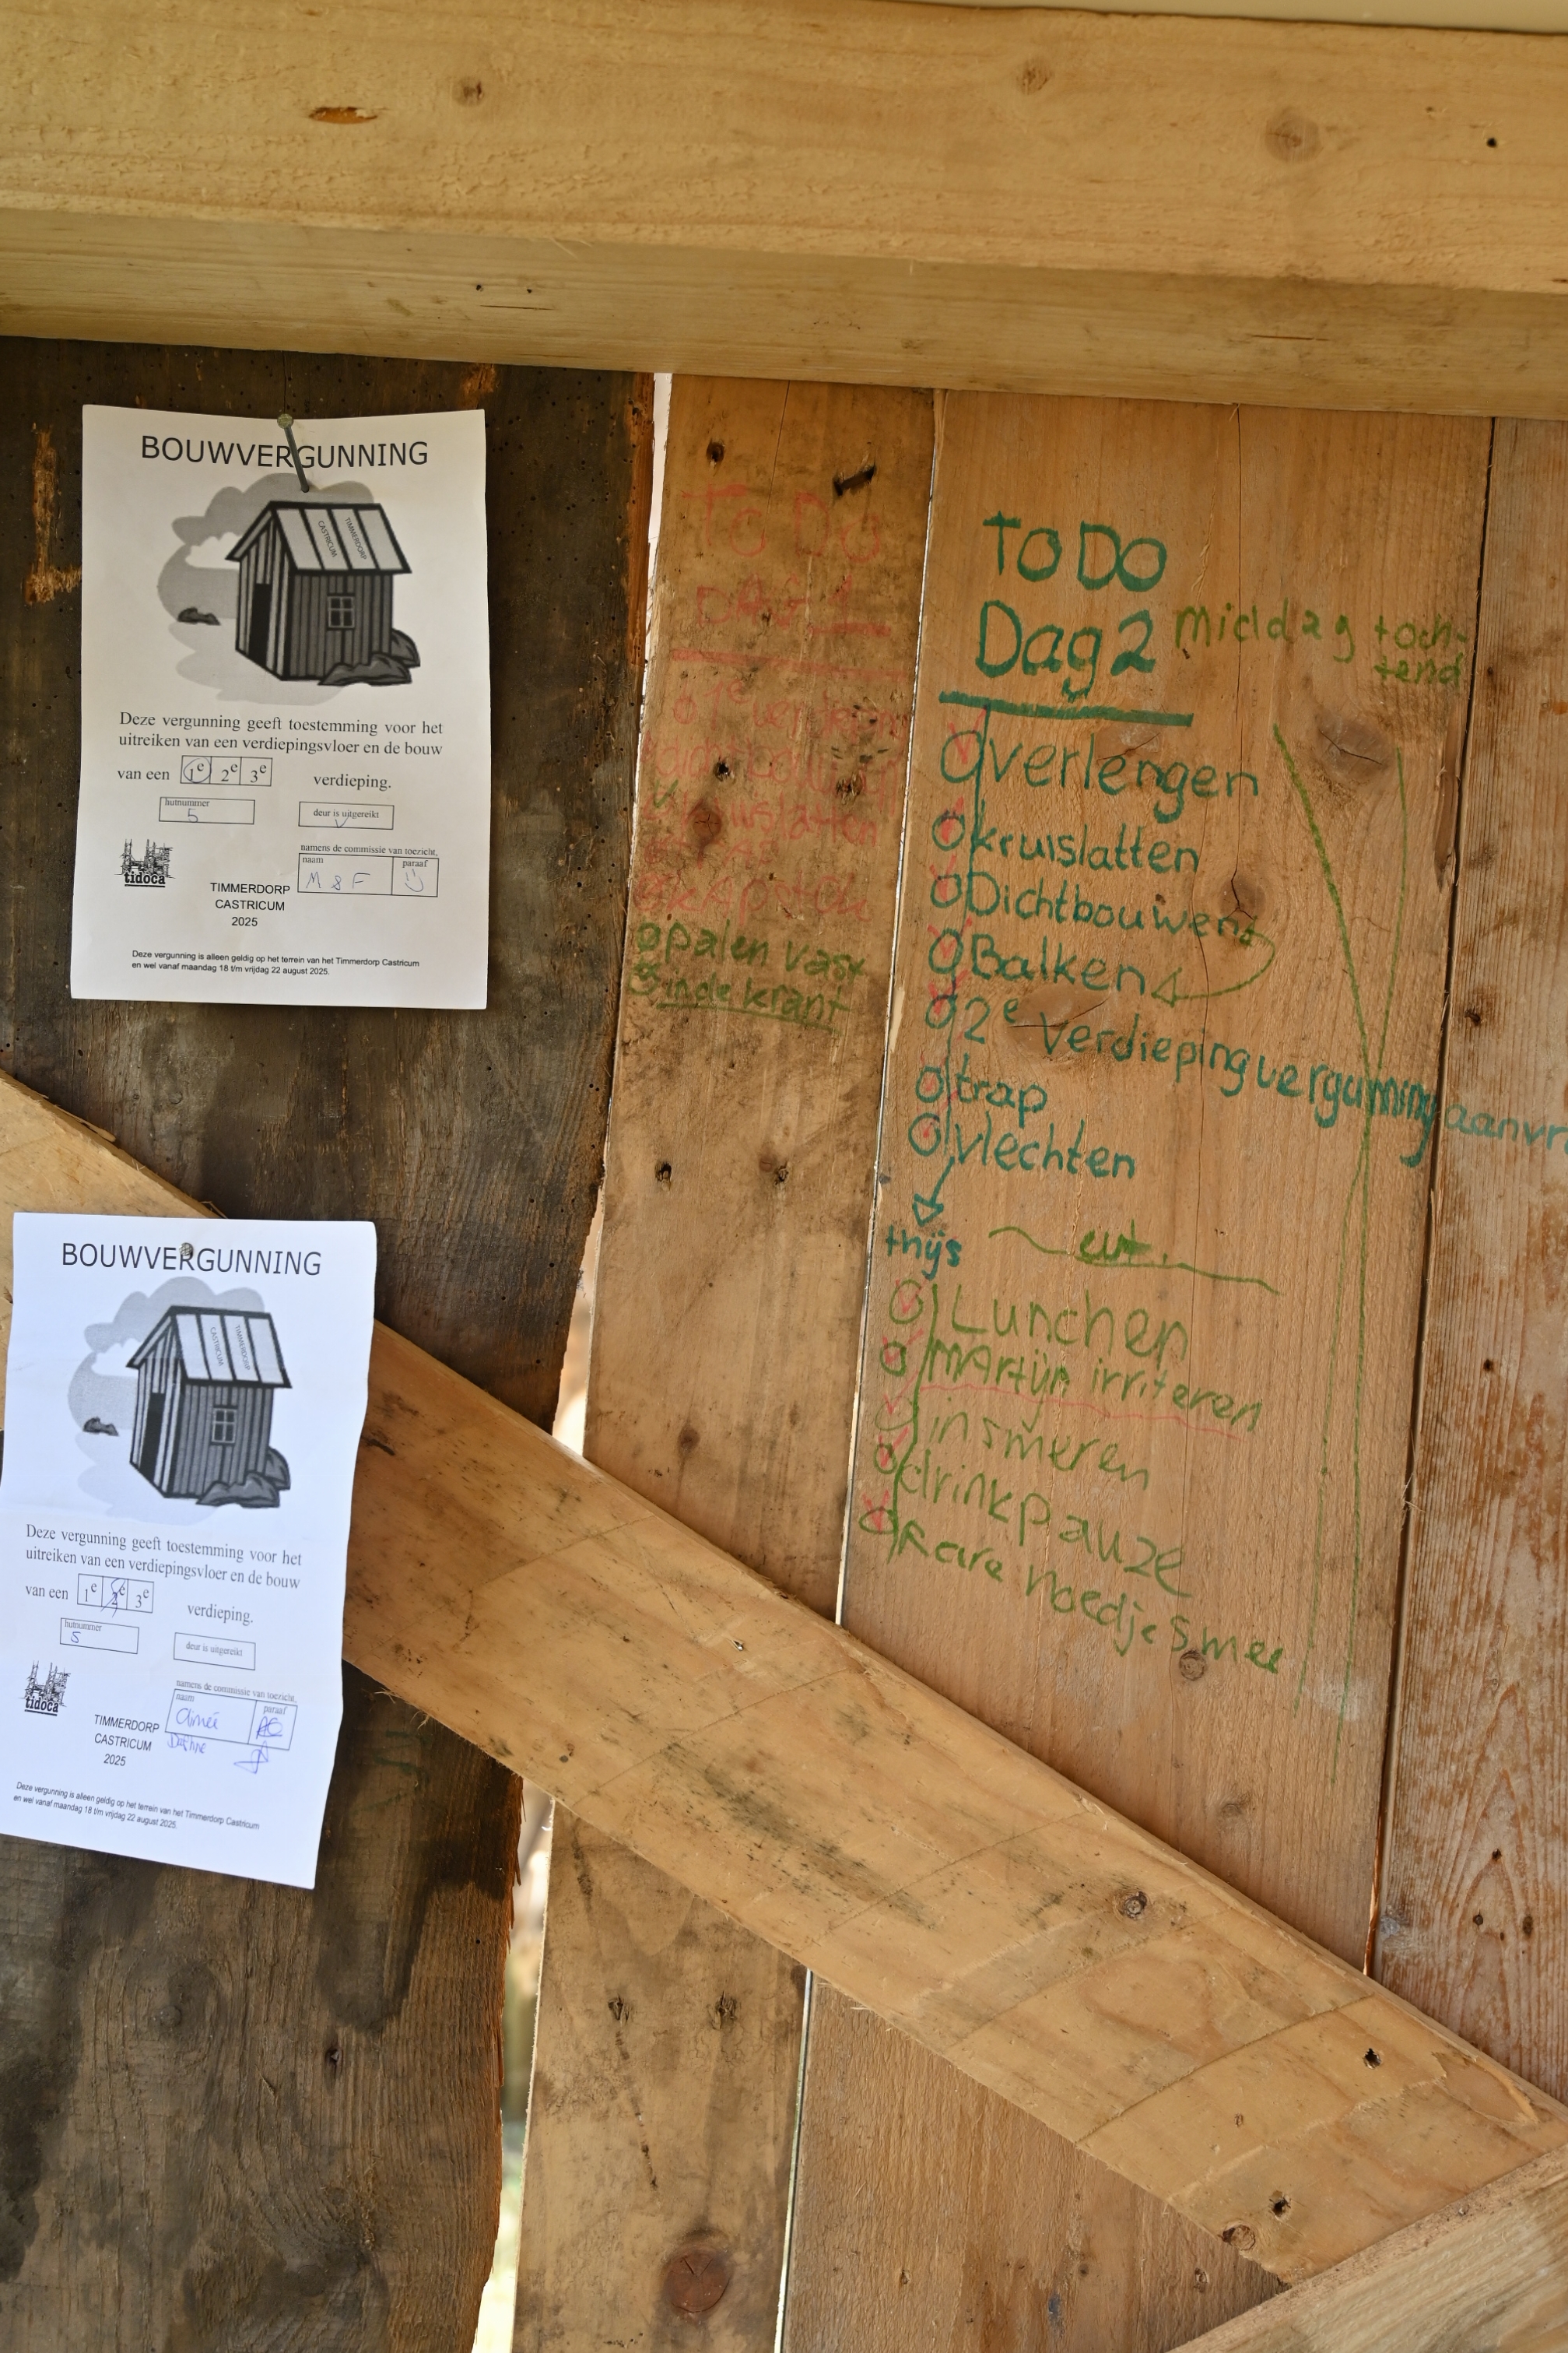 BOUWVERGUNNING
CASTRICUM
TIMMERDORP
Deze vergunning geeft toestemming voor het
uitreiken van een verdiepingsvloer en de bouw
van een 1e 2e 3e verdieping.
hutnummer
5
deur is uitgereikt
V
namens de commissie van toezicht,
naam
paraaf
M & F
tidoca
TIMMERDORP
CASTRICUM
2025
Deze vergunning is alleen geldig op het terrein van het Timmerdorp Castricum
en wel vanaf maandag 18 t/m vrijdag 22 august 2025.
BOUWVERGUNNING
CASTRICUM
TIMMERDORP
Deze vergunning geeft toestemming voor het
uitreiken van een verdiepingsvloer en de bouw
van een 1e 2e 3e verdieping.
hutnummer
5
deur is uitgereikt
namens de commissie van toezicht,
naam
paraaf
Aimée
Dafhne
tidoca
TIMMERDORP
CASTRICUM
2025
Deze vergunning is alleen geldig op het terrein van het Timmerdorp Castricum
en wel vanaf maandag 18 t/m vrijdag 22 august 2025.
To Do
DAG 1
1e
kruislatten
palen vast
in de krant
TO DO
Dag 2 middag + och-
tend
verlengen
kruislatten
Dichtbouwen
Balken
2e verdieping vergunning
trap
vlechten
thijs
Lunchen
MArtijn irriteren
insmeren
drinkpauze
Rare hoedjes mee